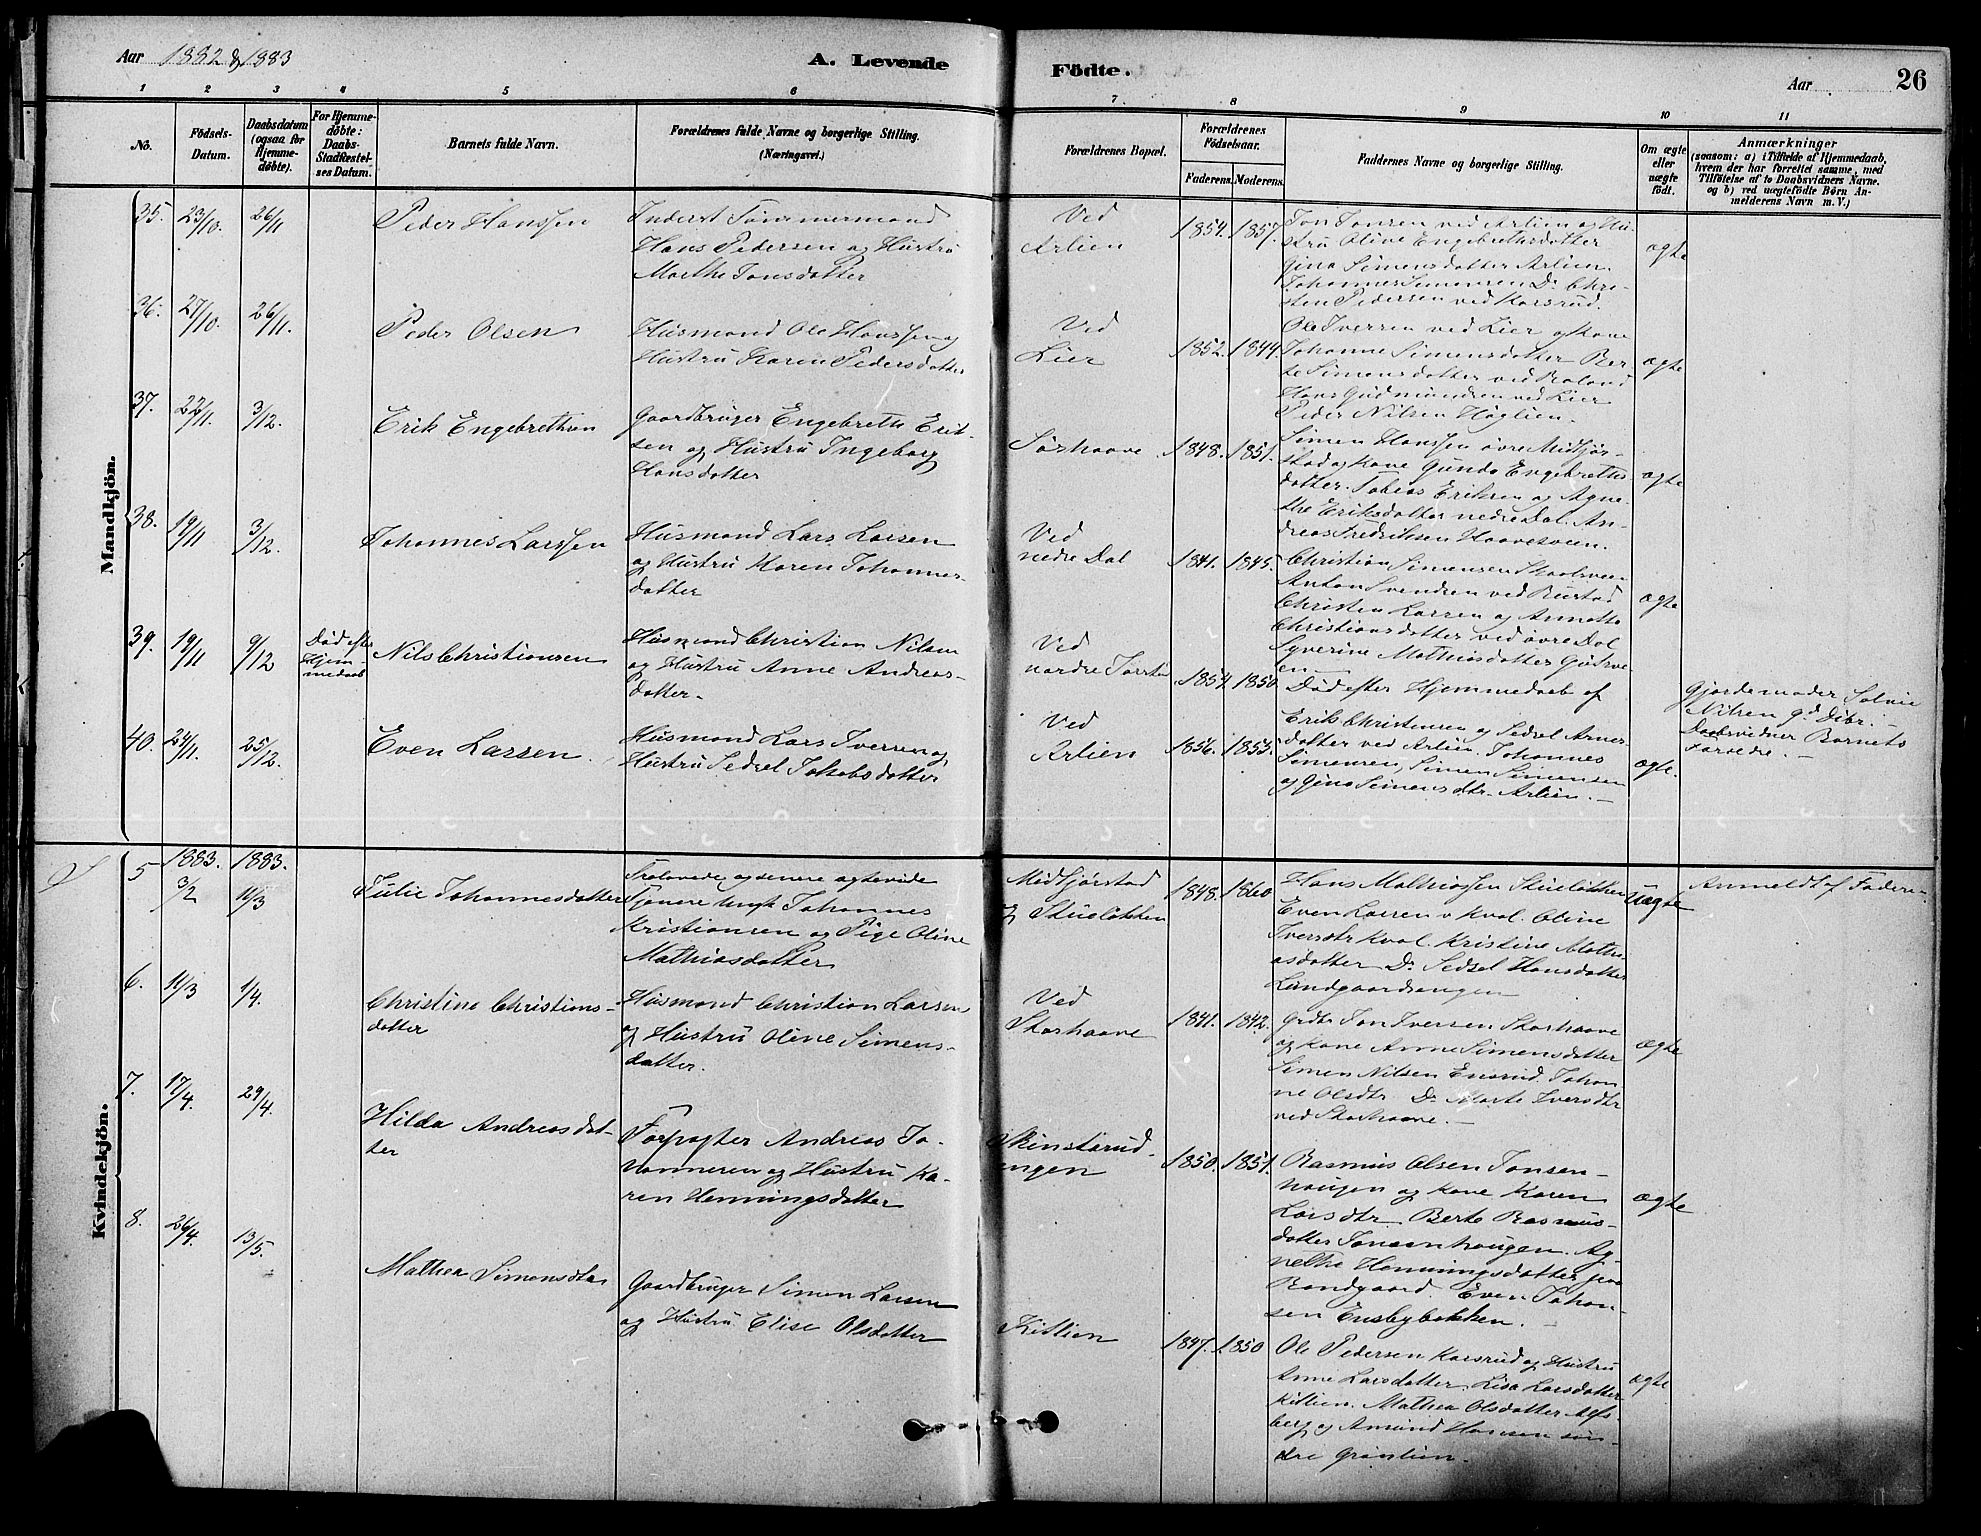 Aar 1882 & 1883
A. Levende
Födte.
Aar
26
1 2 3 4 5 6 7 8 9 10 11
No.
Födsels-
Datum.
Daabsdatum
(ogsaa for
Hjemme-
døbte).
For Hjemme-
døbte:
Daabs-
Stadfæstel-
ses Datum.
Barnets fulde Navn.
Forældrenes fulde Navne og borgerlige Stilling.
(Næringsvei.)
Forældrenes Bopæl.
Forældrenes
Födselsaar.
Faderens. Moderens.
Faddernes Navne og borgerlige Stilling.
Om ægte
eller
uægte
födt.
Anmærkninger
(saasom: a) i Tilfælde af Hjemmedaab,
hvem der har forrettet samme, med
Tilföielse af to Daabsvidners Navne.
og b) ved uægtefödte Börn An-
melderens Navn m. V.)
Mandkjön.
35. 23/10. 26/11
Peder Hanssen
Inderst Tömmermand
Hans Pedersen og Hustru
Marthe Jonsdatter
Ved
Arlien
1854. 1857.
Jon Jonsen ved Arlien og Hu-
stru Olive Engebrethsdatter
Gina Simensdatter Arlien.
Johannes Simensen Do Chri-
sten Pedersen ved Karsrud.
ægte
36. 27/10. 26/11.
Peder Olsen
Husmand Ole Hanssen og
Hustru Karen Pedersdatter
Ved
Lier
1852. 1844.
Ole Iversen ved Lier og Kone
Johanne Simensdatter Ber-
te Simensdatter ved
Hans Gudmundsen ved Lier
Peder Nilsen Höglien.
ægte
37. 22/11. 3/12.
Erik Engebrethsen
Gaardbruger Engebreth Erik-
sen og Hustru Ingeborg
Hansdatter
Sörhaave
1848. 1851.
Simen Hanssen övre Midtjör-
stad og Kone Gunda Engebreths-
datter. Tobias Eriksen og Agne-
the Eriksdatter nedre Dal. An-
dreas Fredriksen Haavesveen.
ægte
38. 19/11 3/12.
Johannes Larssen
Husmand Lars Larsen
og Hustru Karen Johannes-
datter
Ved
nedre Dal
1841. 1845.
Christian Simensen
Anton Svendsen ved Rustad
Christen Larsen og Annette
Christiansdatter ved övre Dal
Syverine Mathiasdatter
ægte
39. 19/11 9/12
Död efter
Hjem-
medaab
Nils Christiansen
Husmand Christian Nilsen
og Hustru Anne Andreas-
datter.
Ved
nordre
1854. 1850.
Död efter Hjemmedaab af
Gjordemoder
Nilsen
Daabsvidner Barnets
Foreldre.
40. 24/11. 25/12.
Even Larsen
Husmand Lars Iversen og
Hustru Sedsel Jakobsdatter
Ved
Arlien
1856. 1855.
Erik Christensen og Sedsel Arnes-
datter ved Arlien. Johannes
Simensen, Simen Simensen
og Gina Simensdtr. Arlien.
ægte.
Kvindekjön.
5 1883. 3/2 1883. 11/3
Julie Johannesdatter
Trolovede og senere ægteviede
Tjenere Ungk Johannes
Kristiansen og Pige Oline
Mathiasdatter
Midtjörstad
og Skuelökken
1848. 1860
Hans Mathiassen Skuelökken
Even Larsen v Kval. Oline
Iversdtr Kval. Kristine Mathi-
asdatter Do Sedsel Hansdatter
Lundgaardsengen
Uægte
Anmeldt af Faderen
6. 11/3 1/4.
Christine Christians-
datter
Husmand Christian Larsen
og Hustru Oline Simens-
datter.
Ved
Storhaave
1841. 1842.
Grdbr Jon Iversen Storhaave
og Kone Anne Simensdatter
Simen Nilsen Enerud. Johan-
ne Olsdtr Do Marte Iversdtr
ved Storhaave.
ægte
7. 17/4. 29/4.
Hilda Andreasdat-
ter
Forpagter Andreas Jo-
hannesen og Hustru Ka-
ren Henningsdatter
Skinstarud-
engen
1850. 1851.
Rasmus Olsen Jonsen-
haugen og Kone Karen
Larsdtr. Berte Rasmus-
datter Jonsenhaugen. Ag-
nethe Henningsdatter
Rondgaard. Even Johan-
sen Ensbybakken.
ægte
8. 26/4. 13/5.
Mathea Simensdtr
Gaardbruger Simen Larsen
og Hustru Elise Olsdatter
Kittlien
1847. 1850
Ole Pedersen Karsrud og Hustru
Anne Larsdatter. Lisa Larsdatter
Kitlien. Mathea Olsdatter Alfs-
berg og Amund Hansen sön-
dre Grönlien.
ægte